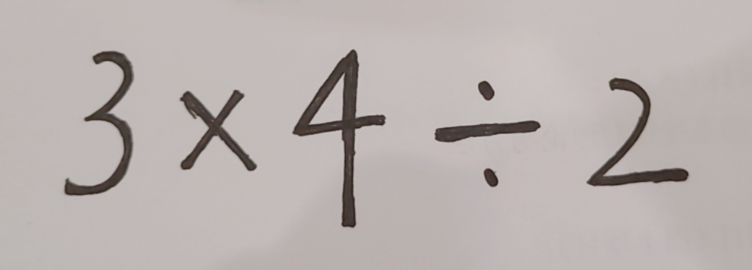 3 × 4 ÷ 2